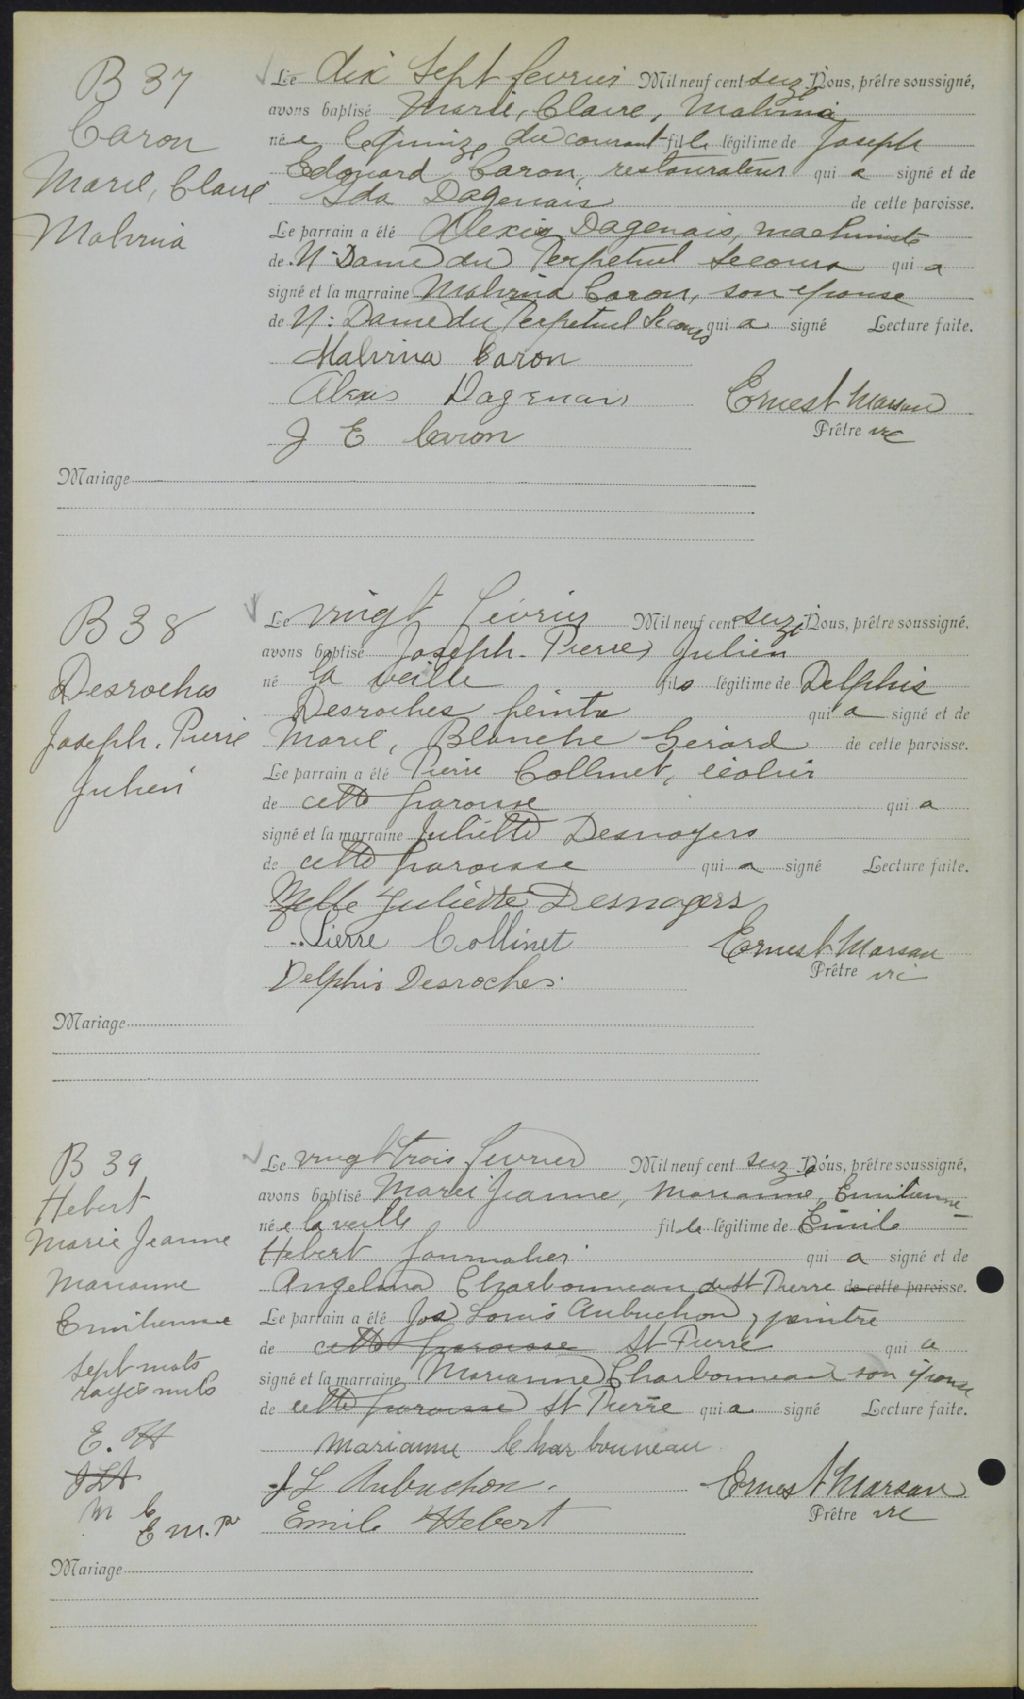 B 37
Caron
Marie, Claire
Malvina
Le dix sept fevrier Mil neuf cent seize Nous, prêtre soussigné,
avons baptisé Marie, Claire, Malvina
née le quinze du courant fille légitime de Joseph
Edouard Caron, restaurateur qui a signé et de
Ida Dagenais de cette paroisse.
Le parrain a été Alexis Dagenais, machiniste
de N. Dame du Perpetuel Secours qui a
signé et la marraine Malvina Caron, son épouse
de N. Dame du Perpetuel Secours qui a signé Lecture faite.
Malvina Caron
Alexis Dagenais
Ernest Marsan
J E Caron
Prêtre vic
Mariage
B 38
Desroches
Joseph. Pierre
Julien
Le vingt février Mil neuf cent seize Nous, prêtre soussigné,
avons baptisé Joseph. Pierre, Julien
né la veille fils légitime de Delphis
Desroches peintre qui a signé et de
Marie, Blanche Gerard de cette paroisse.
Le parrain a été Pierre Collinet, écolier
de cette paroisse qui a
signé et la marraine Juliette Desnoyers
de cette paroisse qui a signé Lecture faite.
Melle Juliette Desnoyers
Pierre Collinet
Ernest Marsan
Prêtre vic
Delphis Desroches.
Mariage
B 39
Hebert
Marie Jeanne
Marianne
Emilienne
sept mots
rayés nuls
E. H
J L A
M C
E M. Ptr
Le vingt trois fevrier Mil neuf cent seize Nous, prêtre soussigné,
avons baptisé Marie Jeanne, Marianne, Emilienne
née la veille fille légitime de Emile
Hebert Journalier qui a signé et de
Angelina Charbonneau de St Pierre de cette paroisse.
Le parrain a été Jos Louis Aubuchon, peintre
de cette paroisse St Pierre qui a
signé et la marraine Marianne Charbonneau son épouse
de cette paroisse St Pierre qui a signé Lecture faite.
Marianne Charbonneau
J L Aubuchon.
Ernest Marsan
Prêtre vic
Emile Hebert
Mariage